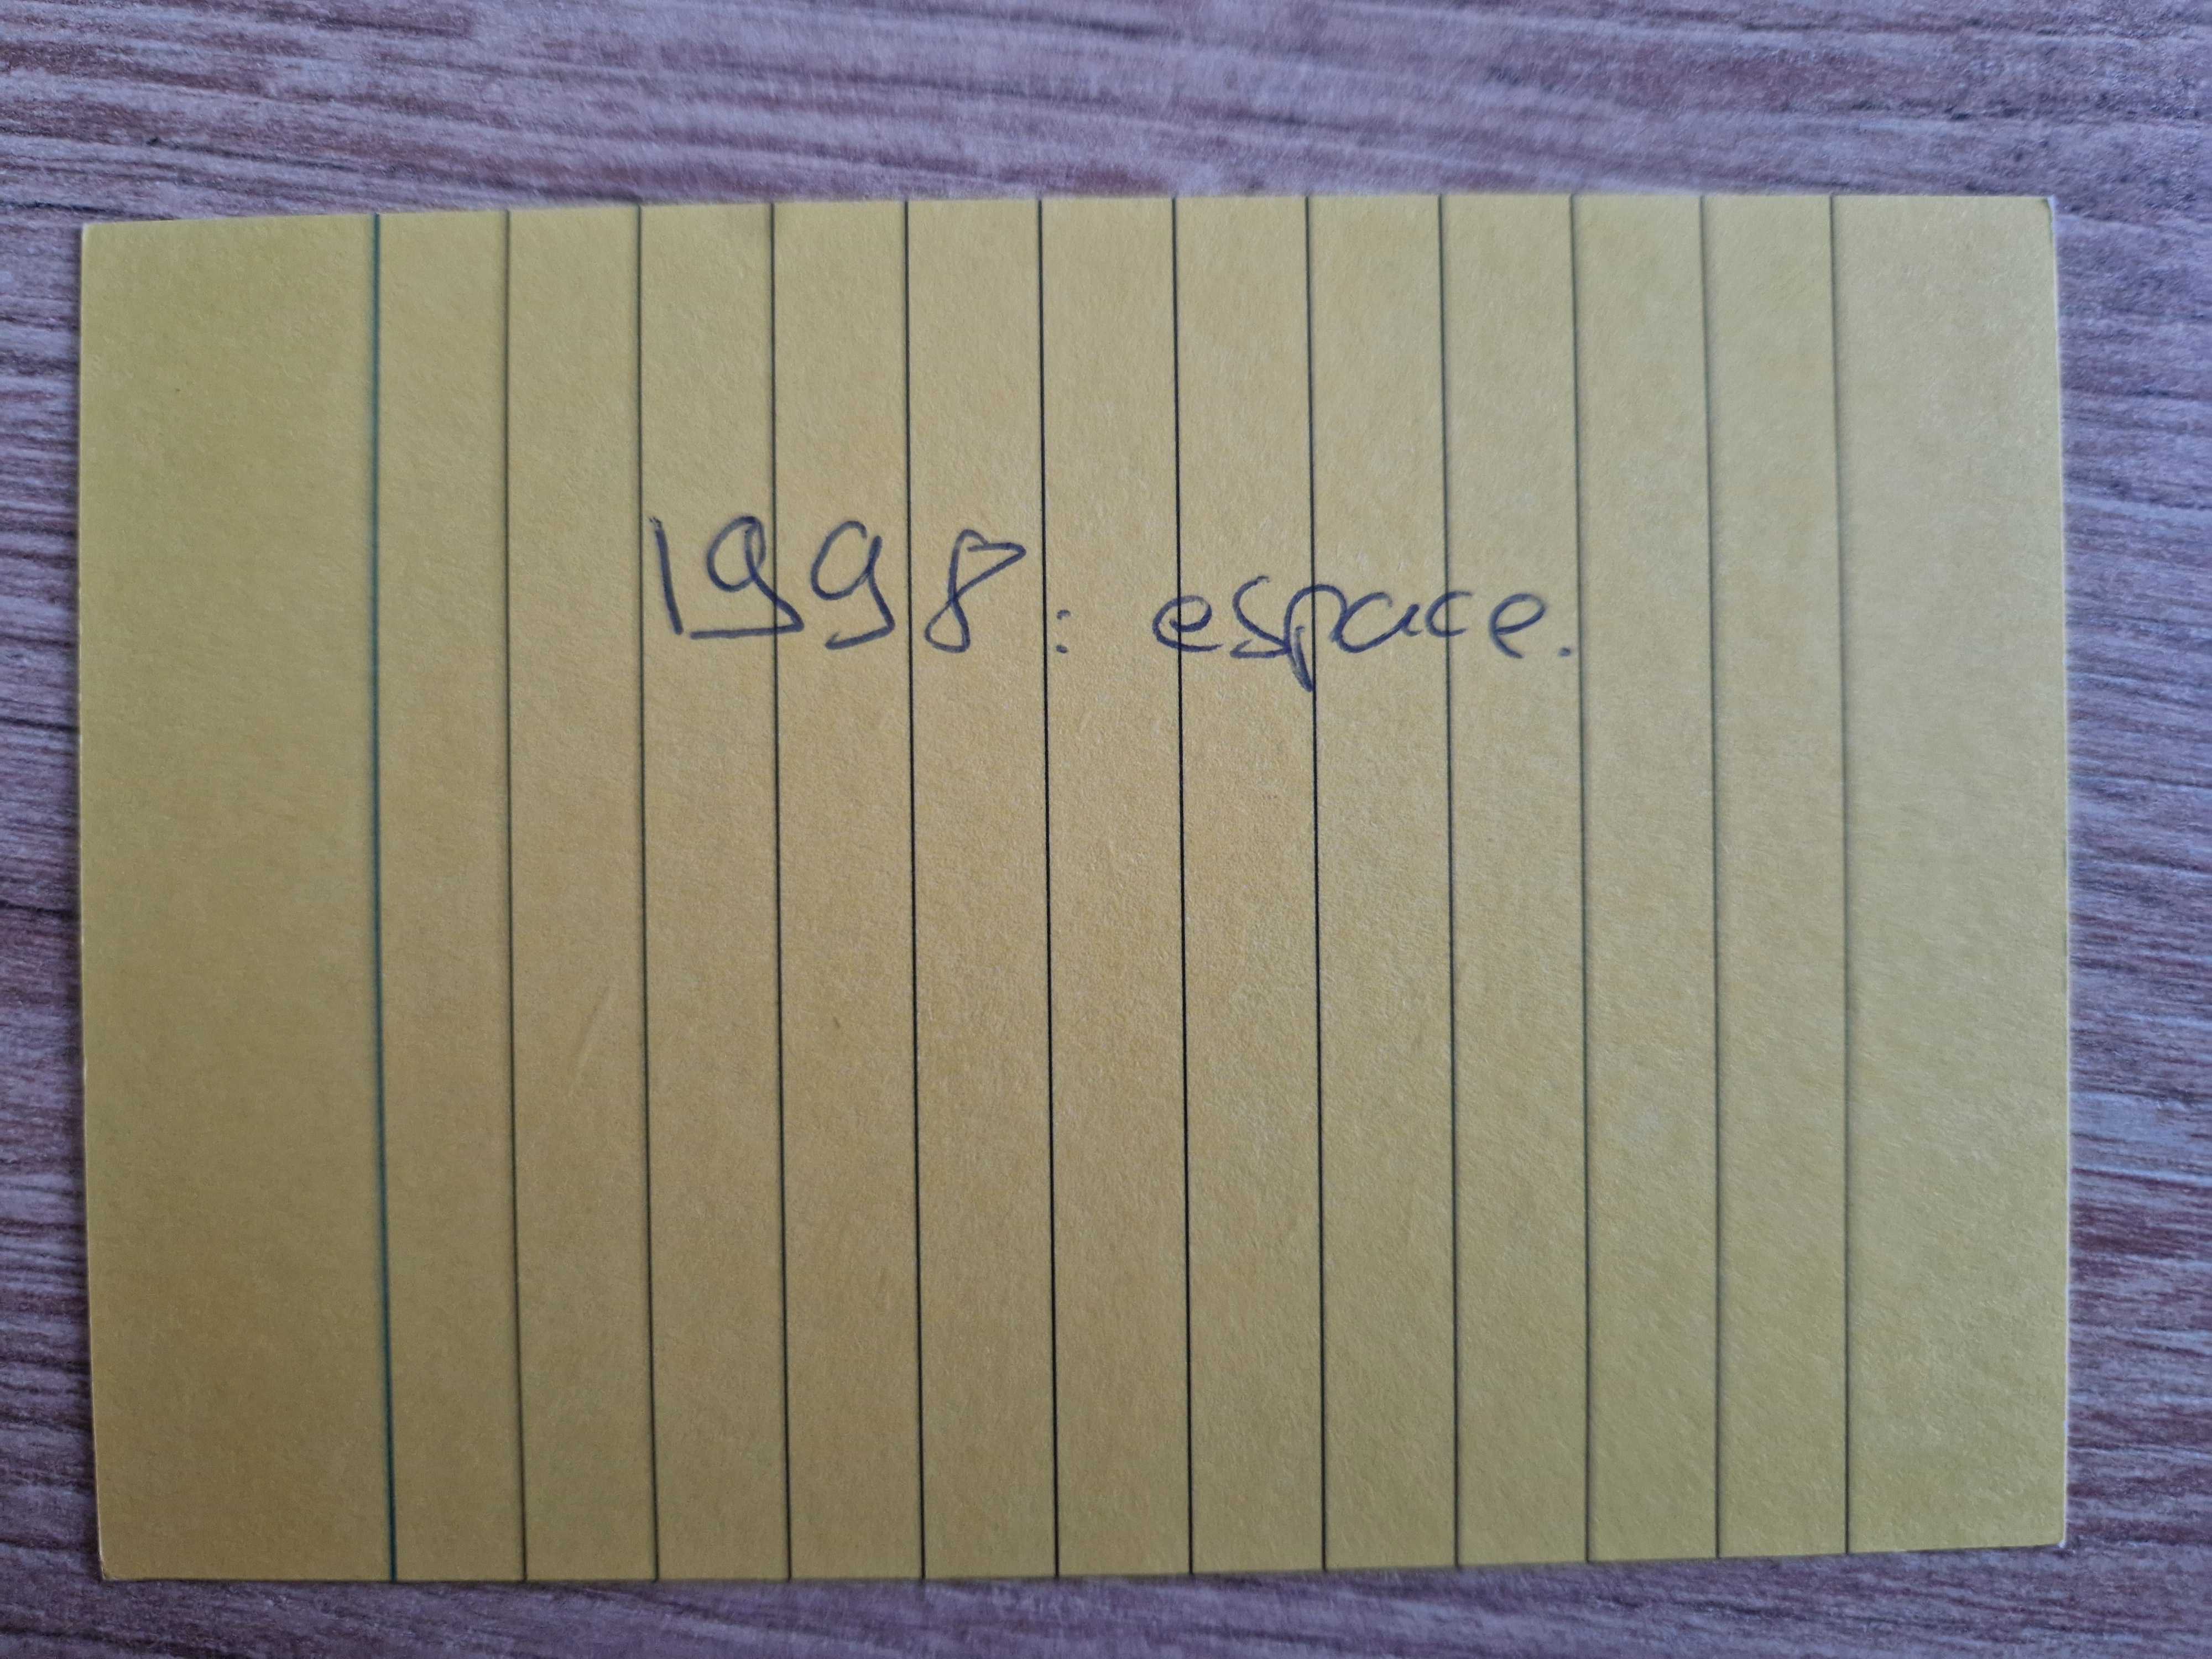 1998: espace.